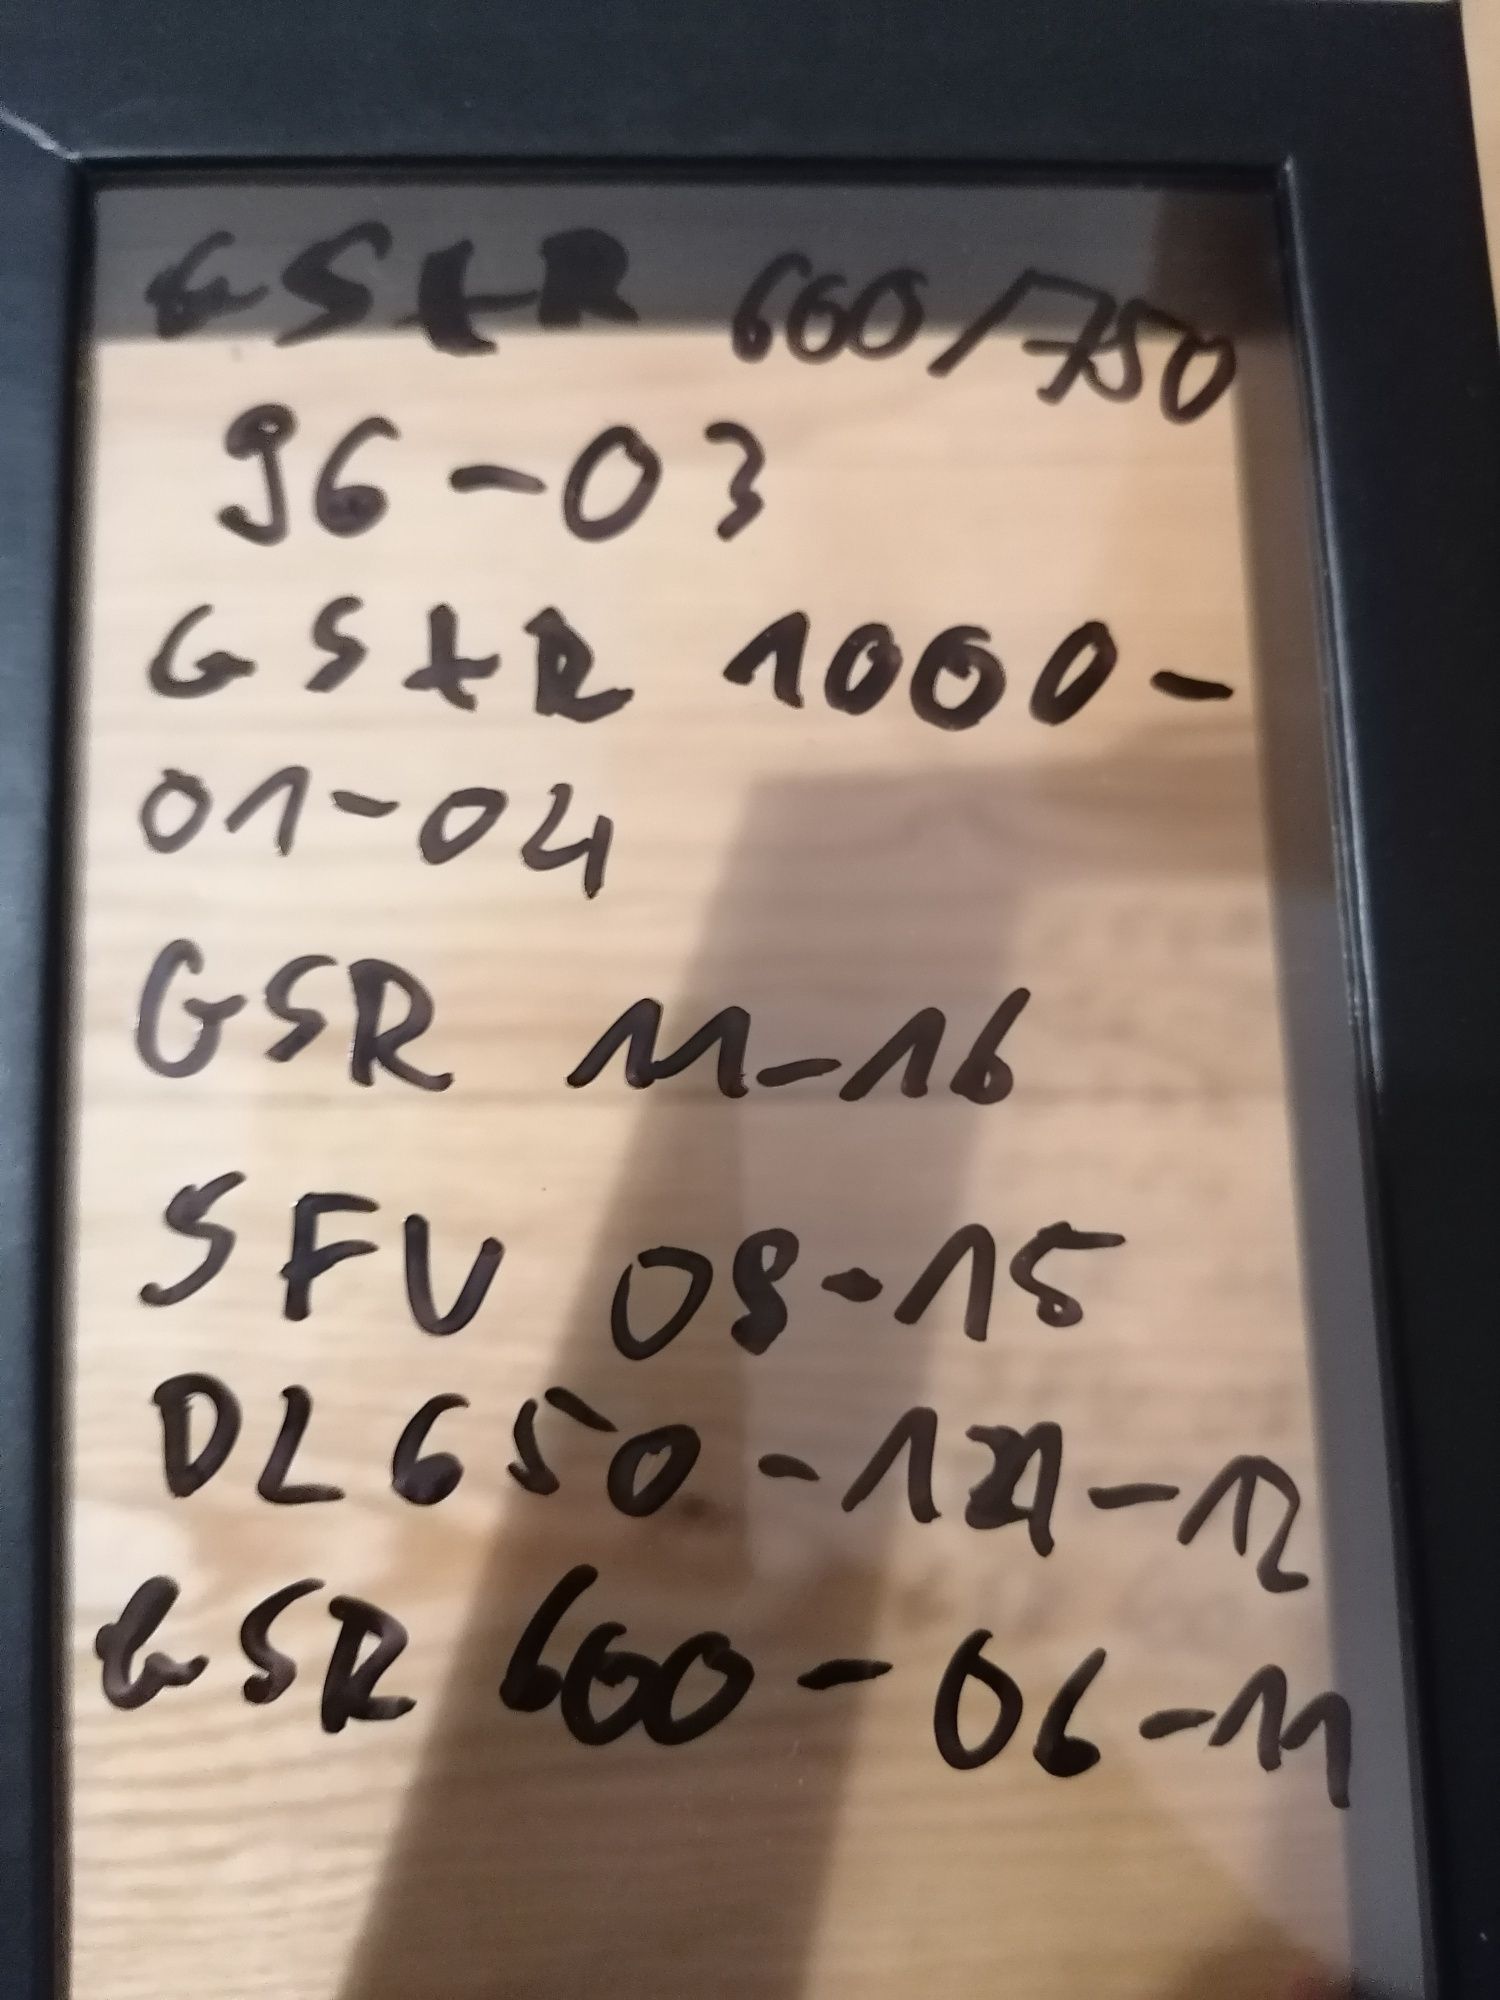 GSXR 600/750
96-03
GSXR 1000-
01-04
GSR 11-16
SFV 09-15
DL650-
-12
GSR 600-06-11